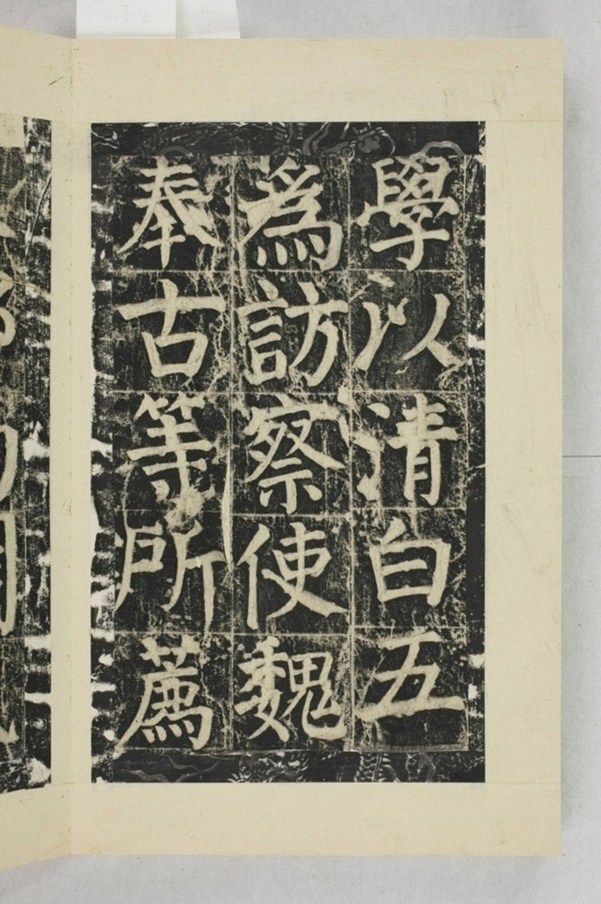 學以清白五
為訪察使魏
奉古等所薦